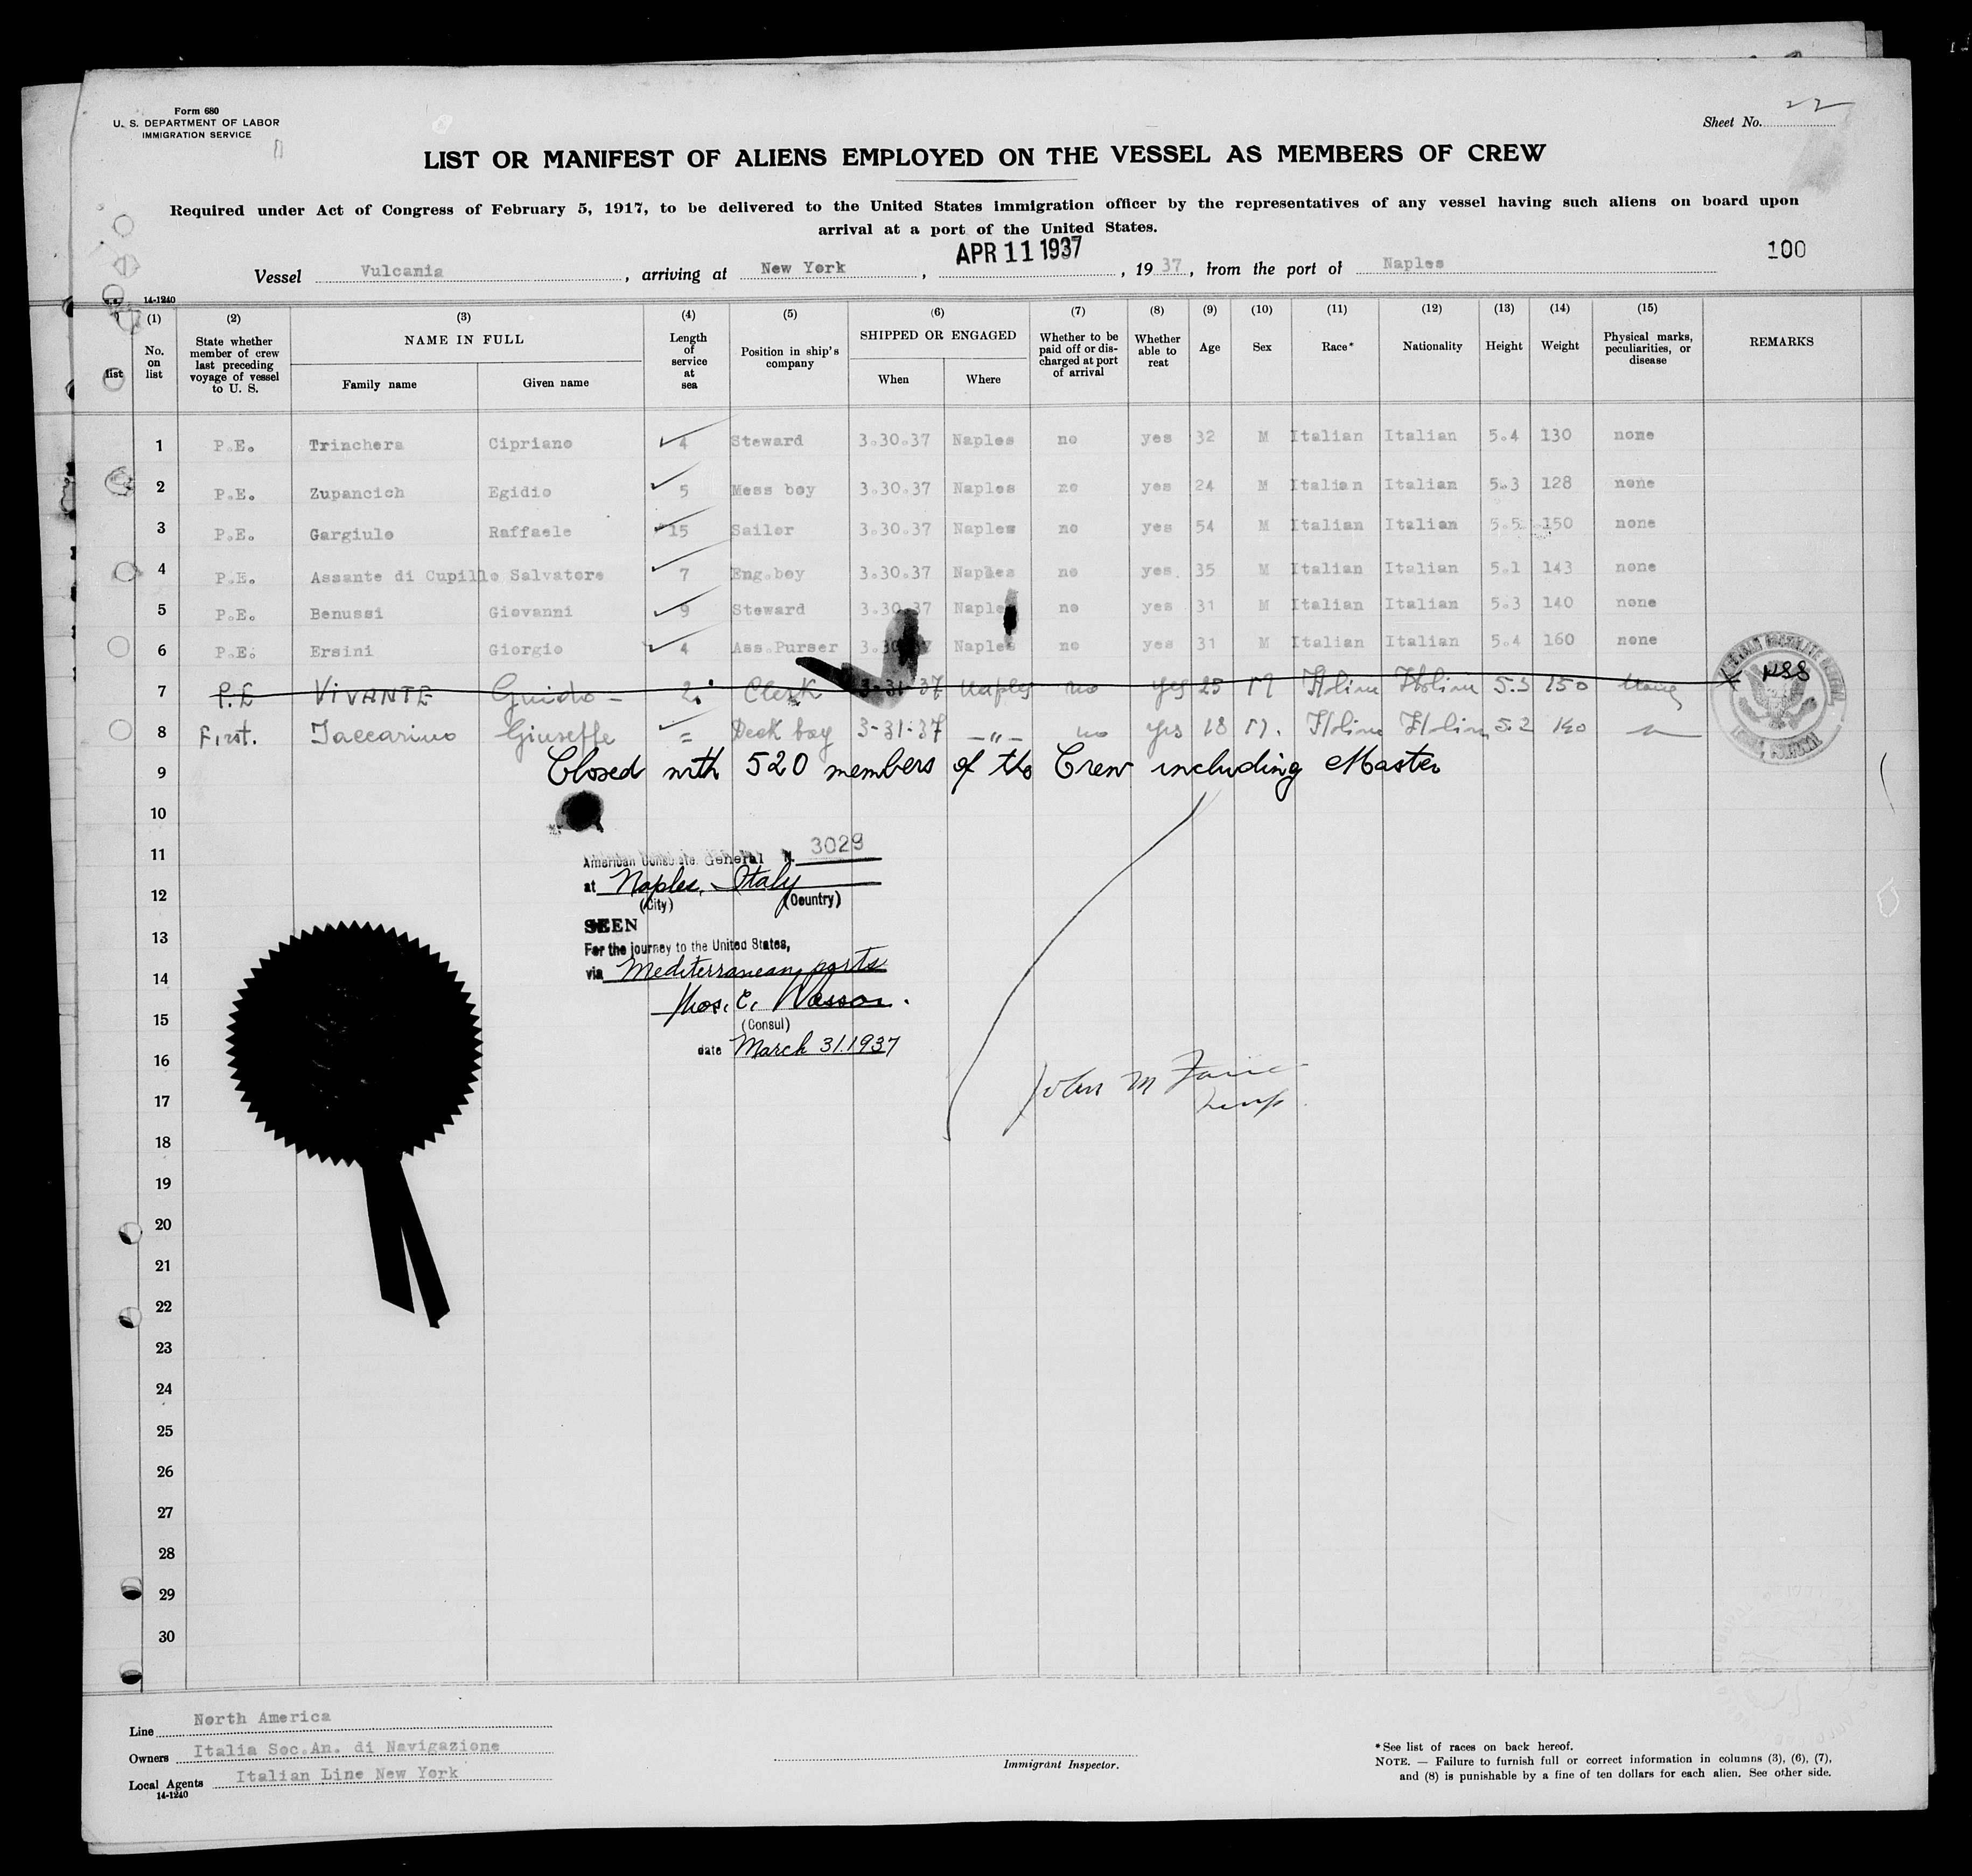 Form 680
U. S. DEPARTMENT OF LABOR
IMMIGRATION SERVICE
Sheet No. 22
LIST OR MANIFEST OF ALIENS EMPLOYED ON THE VESSEL AS MEMBERS OF CREW
Required under Act of Congress of February 5, 1917, to be delivered to the United States immigration officer by the representatives of any vessel having such aliens on board upon
arrival at a port of the United States.
Vessel Vulcania, arriving at New York, APR 11 1937, 1937, from the port of Naples
100
14-1240
list
(1) No. on list
(2) State whether member of crew last preceding voyage of vessel to U. S.
(3) NAME IN FULL Family name Given name
(4) Length of service at sea
(5) Position in ship's company
(6) SHIPPED OR ENGAGED When Where
(7) Whether to be paid off or discharged at port of arrival
(8) Whether able to reat
(9) Age
(10) Sex
(11) Race*
(12) Nationality
(13) Height
(14) Weight
(15) Physical marks, peculiarities, or disease
REMARKS
1 P.E. Trinchera Cipriano 4 Steward 3.30.37 Naples no yes 32 M Italian Italian 5.4 130 none
2 P.E. Zupancich Egidio 5 Mess boy 3.30.37 Naples no yes 24 M Italian Italian 5.3 128 none
3 P.E. Gargiulo Raffaele 15 Sailor 3.30.37 Naples no yes 54 M Italian Italian 5.5 150 none
4 P.E. Assante di Cupillo Salvatore 7 Eng.boy 3.30.37 Naples no yes. 35 M Italian Italian 5.1 143 none
5 P.E. Benussi Giovanni 9 Steward 3.30.37 Naples no yes 31 M Italian Italian 5.3 140 none
6 P.E. Ersini Giorgio 4 Ass.Purser 3.30.37 Naples no yes 31 M Italian Italian 5.4 160 none
7 P.E VIVANTE Guido - 2 Clerk 3-31-37 Naples no yes 25 M 5.5 150
8 First. Iaccarino Giuseppe = Deck boy 3-31-37 -"- no yes 18 M. 5.2 140
9 Closed with 520 members of the Crew including Master
10
11
12
13
14
15
16
17
18
19
20
21
22
23
24
25
26
27
28
29
30
American Consulate General N. 3029
at Naples, Italy
(City) (Country)
SEEN
For the journey to the United States,
via Mediterranean ports
Thos. E. Wasson.
(Consul)
date March 31.1937
John M
Line North America
Owners Italia Soc.An. di Navigazione
Local Agents Italian Line New York
14-1240
Immigrant Inspector.
*See list of races on back hereof.
NOTE. — Failure to furnish full or correct information in columns (3), (6), (7),
and (8) is punishable by a fine of ten dollars for each alien. See other side.